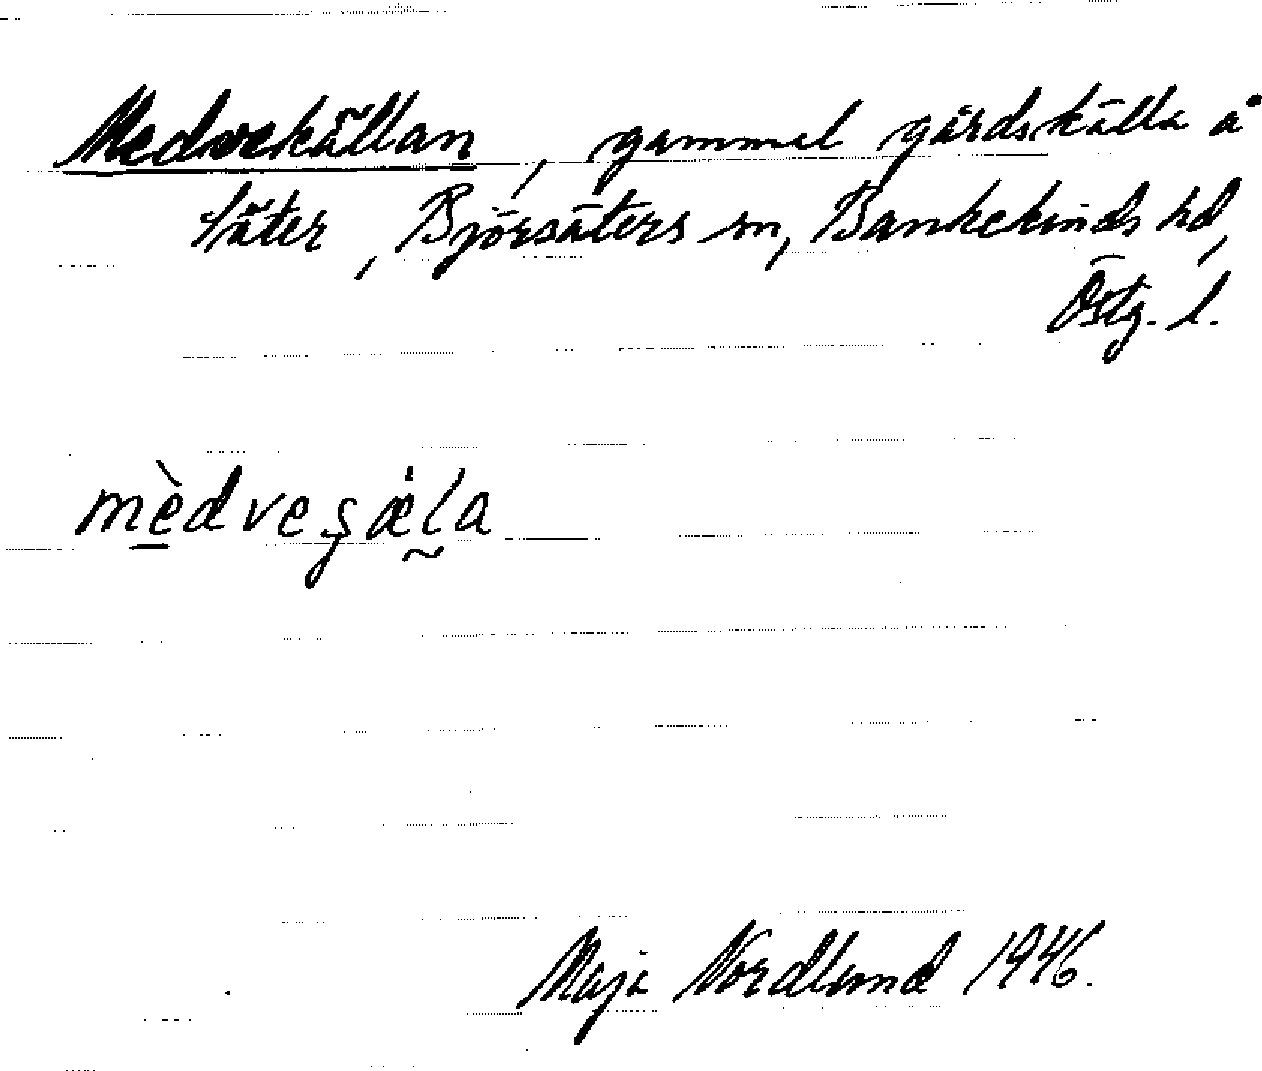 Medvekällan, gammel gårdskälla å
Säter, Björsäters sn, Bankekinds hd,
Östg. l.
mèdveʂæ̍l̰a
Maja Nordlund 1946.